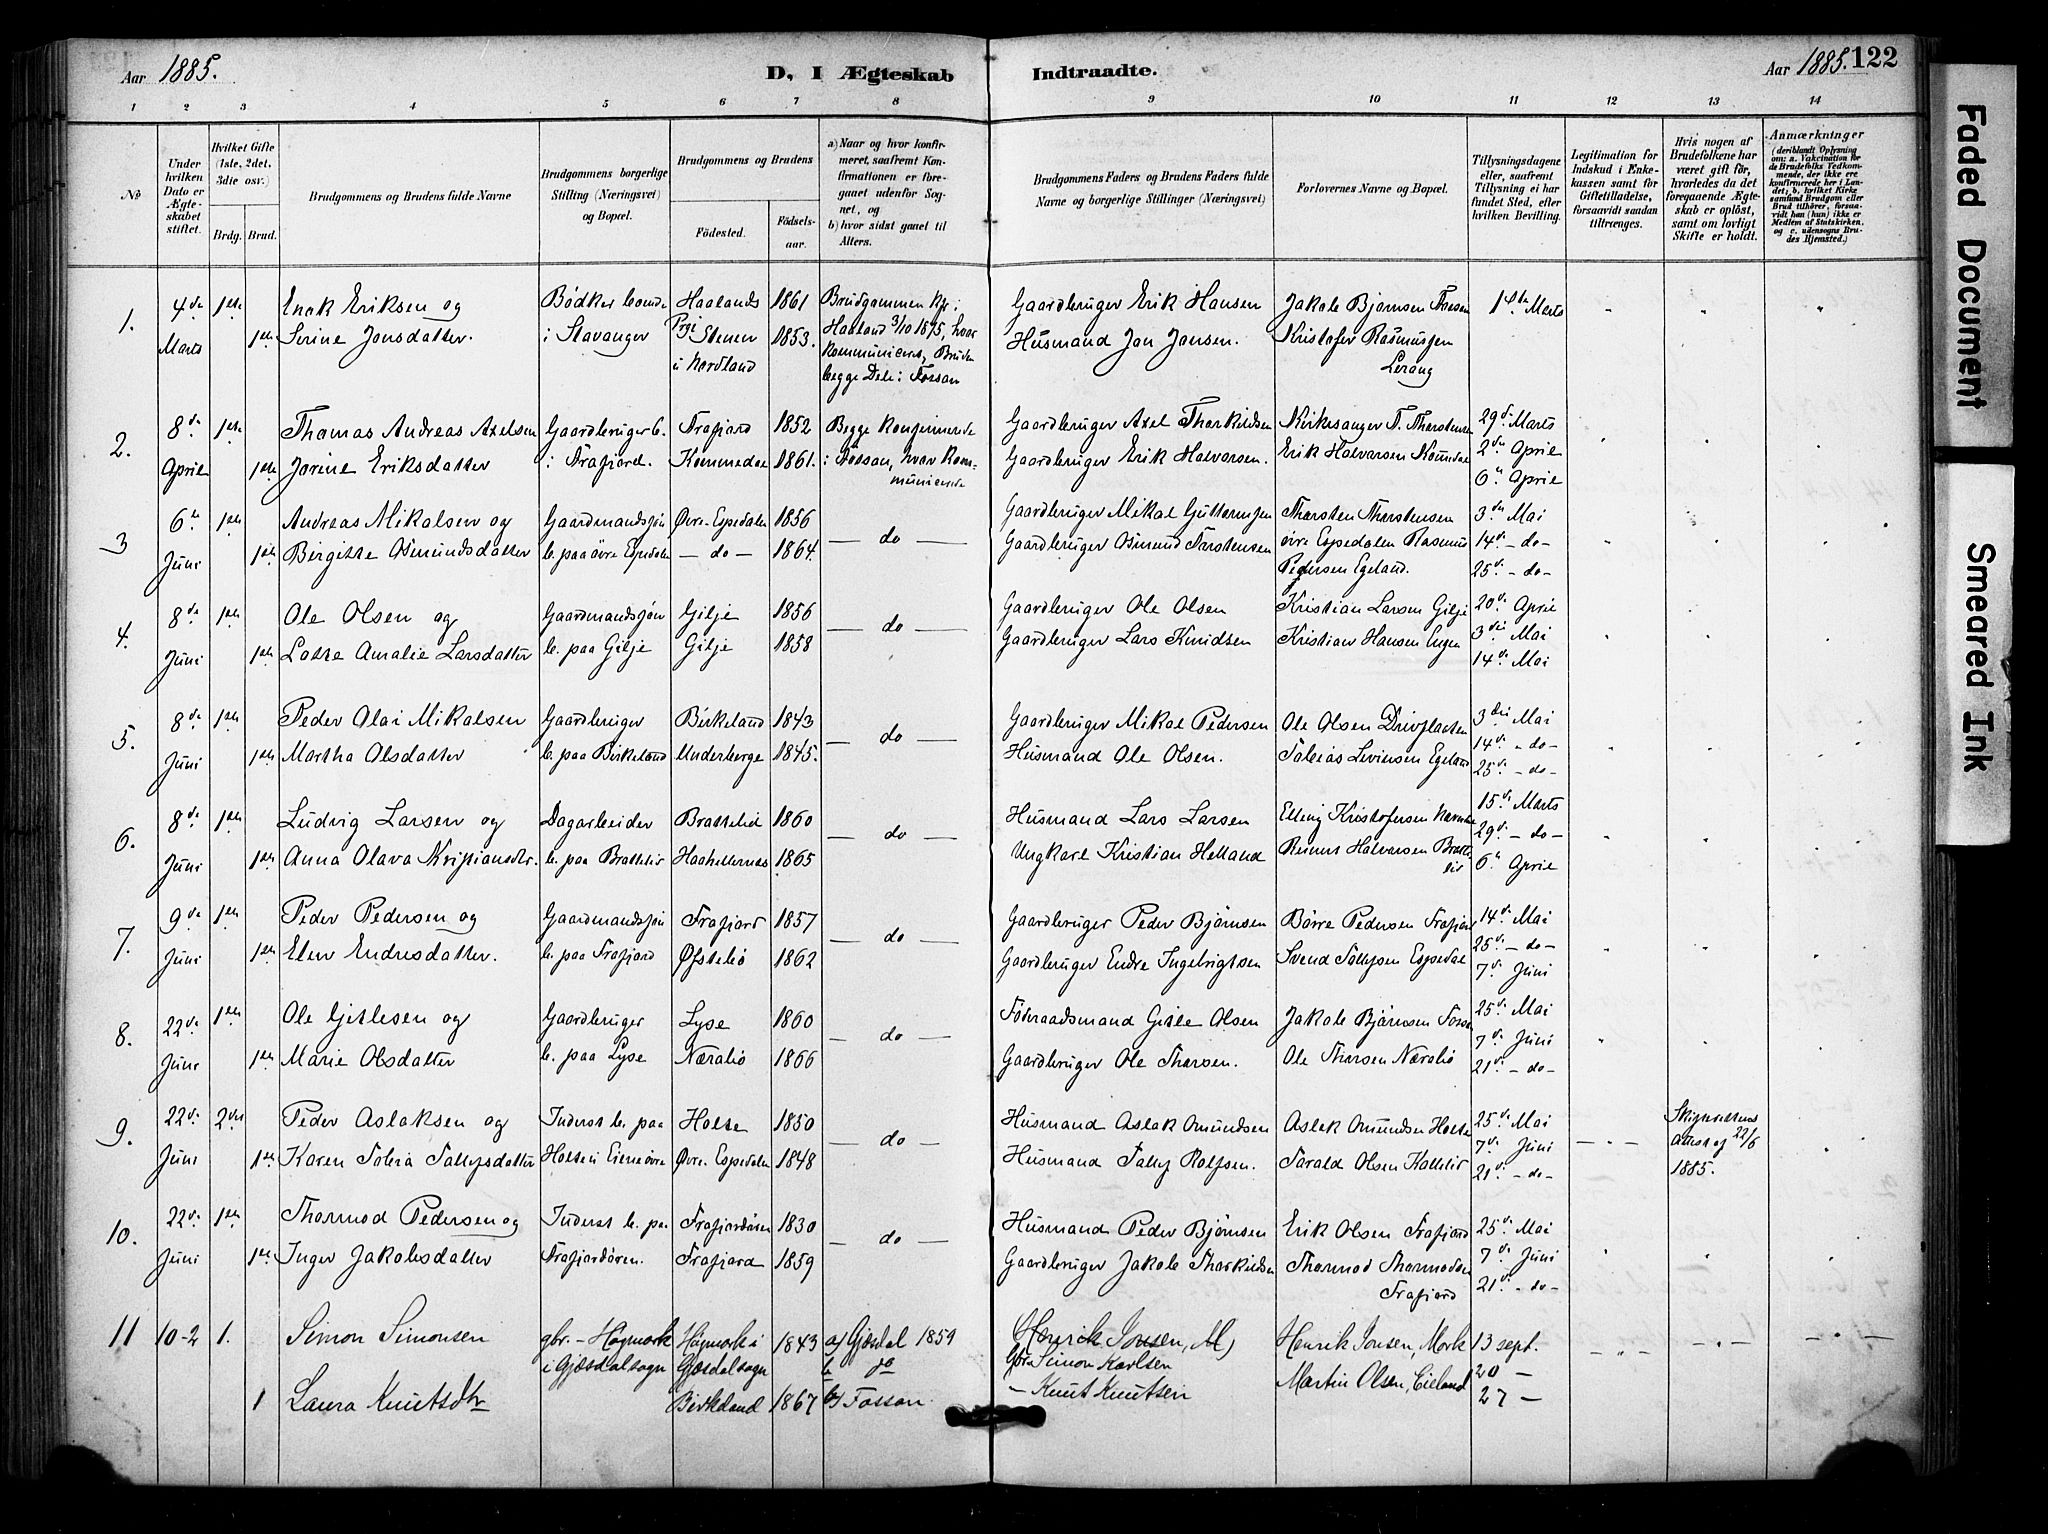 Aar 1885.
D, I Ægteskab
Indtraadte.
Aar 1885. 122
1 2 3 4 5 6 7 8 9 10 11 12 13 14
№
Under hvilken Dato er Ægteskabet stiftet.
Hvilket Gifte (1ste, 2det, 3die osv.)
Brdg. Brud.
Brudgommens og Brudens fulde Navne
Brudgommens borgerlige Stilling (Næringsvei) og Bopæl.
Brudgommens og Brudens
Födested.
Födselsaar.
a) Naar og hvor konfirmeret, saafremt Konfirmationen er foregaaet udenfor Sognet, og
b) hvor sidst gaaet til Alters.
Brudgommens Faders og Brudens Faders fulde Navne og borgerlige Stillinger (Næringsvei)
Forlovernes Navne og Bopæl.
Tillysningsdagene eller, saafremt Tillysning ei har fundet Sted, efter hvilken Bevilling.
Legitimation for Indskud i Enkekassen samt for Giftetilladelse, forsaavidt saadan tiltrænges.
Hvis nogen af Brudefolkene har været gift för, hvorledes da det foregaaende Ægteskab er oplöst, samt om lovligt Skifte er holdt.
Anmærkninger
(deriblandt Oplysning om: a. Vakcination for de Brudefolks Vedkommende, der ikke ere konfirmerede her i Landet; b. hvilket Kirkesamfund Brudgom eller Brud tilhörer, forsaavidt han (hun) ikke er Medlem af Statskirken, og c. udensogns Brudes Hjemsted.)
1. 4de Marts 1ste Enok Eriksen og Bödker boende Haalands 1861 Brudgommen kfr i Gaardbruger Erik Hansen Jakob Bjørnsen Fossan 1ste Marts
1ste Serine Jonsdatter. i Stavanger Prgj Stenen i Nordland 1853. Haaland 3/10 1875, hvor kommunicent, Bruden begge Dele i Fossan Husmand Jon Jonsen. Kristofer Rasmussen Lerang
2. 8de April 1ste Thomas Andreas Axelsen Gaardbruger b. Frafjord 1852 Begge konfirmerede Gaardbruger Axel Thorkildsen Kirkesanger T. Thorstensen 29de Marts
1ste Jorine Eriksdatter i Frafjord. Kommedal 1861. i Fossan, hvor kommunicerede Gaardbruger Erik Halvorsen. Erik Halvorsen Komedal 2den April
6te April
3 6te Juni 1ste Andreas Mikalsen og Gaardmandssön Øvre-Espedalen 1856 — do — Gaardbruger Mikal Guttormsen Thorsten Thorstensen 3die Mai
1ste Birgitte Osmundsdatter b. paa övre Espedalen — do — 1864. Gaardbruger Osmund Torstensen övre Espedalen Rasmus 14de — do —
Pedersen Egeland. 25de — do —
4. 8de Juni 1ste Ole Olsen og Gaardmandssön Gilje 1856 — do — Gaardbruger Ole Olsen Kristian Larsen Gilje 20de April
1ste Lotte Amalie Larsdatter b. paa Gilje Gilje 1858 Gaardbruger Lars Knudsen Kristian Hansen Engen 3die Mai
14de Mai
5. 8de Juni 1ste Peder Olai Mikalsen Gaardbruger Birkeland 1843 — do — Gaardbruger Mikal Pedersen Ole Olsen 3die Mai
1ste Martha Olsdatter b. paa Birkeland Underberge 1845. Husmand Ole Olsen. Tobias Sevrinsen Egeland 14de — do —
25de — do —
6. 8de Juni 1ste Ludvig Larsen og Dagarbeider Brattelid 1860 — do — Husmand Lars Larsen Elling Kristofersen 15de Marts
1ste Anna Olava Kristiansdtr. b. paa Brattelid 1865 Ungkarl Kristian Helland Halvorsen Brattelid 29de — do —
6te April
7. 9de Juni 1ste Peder Pedersen og Gaardmandssön Frafjord 1857 — do — Gaardbruger Peder Bjørnsen Börre Pedersen Frafjord 14de Mai
1ste Elen Endresdatter. b. paa Frafjord Øfstebö 1862 Gaardbruger Endre Ingebrigtsen Svend Tollefsen Espedal 25de — do —
7de Juni
8. 22de Juni 1ste Ole Gitlesen og Gaardbruger Lyse 1860 — do — Föderaadsmand Gitle Olsen Jakob Bjørnsen Fossan 25de Mai
1ste Marie Olsdatter b. paa Lyse Nærabö 1866 Gaardbruger Ole Thorsen. Ole Thorsen Nærabö 7de Juni
21de — do —
9. 22de Juni 2det Peder Aslaksen og Inderst b. paa Holte 1850 — do — Husmand Aslak Omundsen Aslak Omundsen Holte 25de Mai Skifterettens
1ste Karen Tobia Tollefsdatter Holte i Øvre-Espedalen 1848 Husmand Tollef Rolfsen. Tarald Olsen 7de Juni attest af 22/6
21de — do — 1885.
10. 22de Juni 1ste Thormod Pedersen og Inderst b. paa Frafjordören 1830 — do — Husmand Peder Bjørnsen Erik Olsen Frafjord 25de Mai
1ste Inger Jakobsdatter Frafjordören. Frafjord 1859 Gaardbruger Jakob Thorkildsen Thormod Thormodsen Frafjord 7de Juni
21de — do —
11 10-2 1. Simon Simonsen gbr. - Høgmork i Gjæsdalsogn Høgmork i Gjæsdalsogn 1843 a) Gjæsdal 1859 b do Henrik Jonsen, M) Gbr. Simon Karlsen Henrik Jonsen, Mork 13 sept.
1 Laura Knutsdtr Birkeland 1867 b) Fossan. — Knut Knutsen Martin Olsen, Eieland 20 —
27 —
Faded Document
Smeared Ink